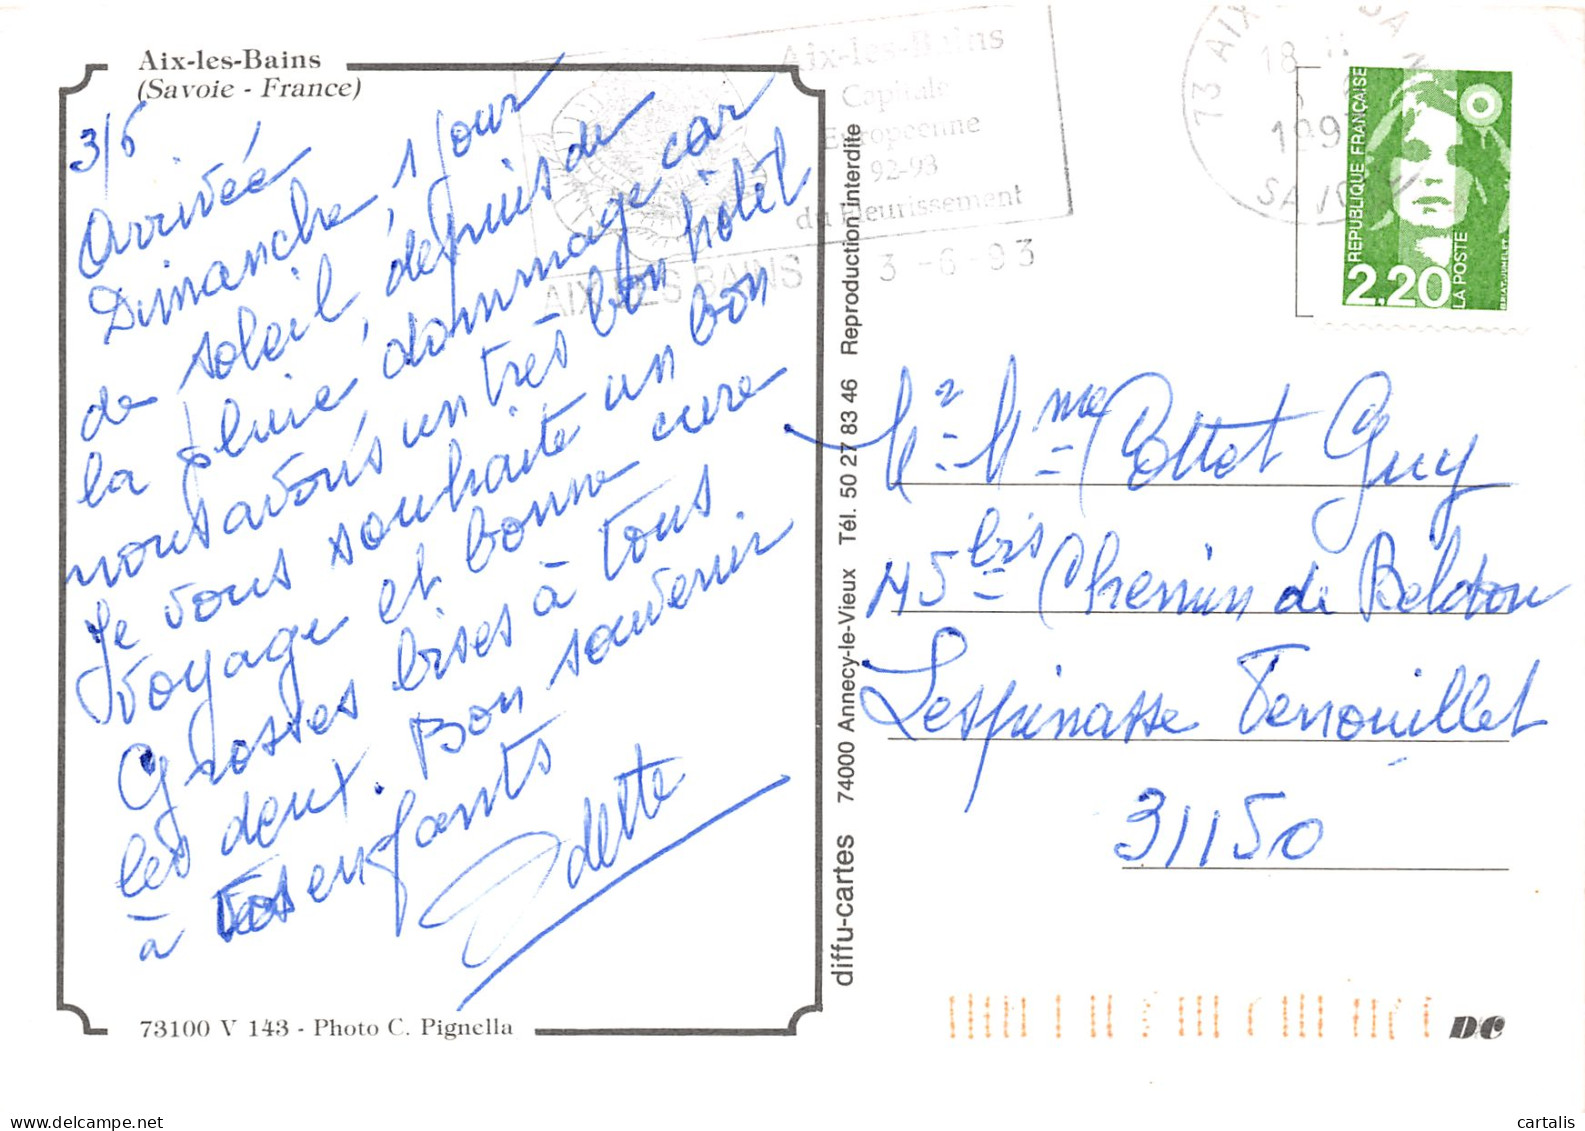 Aix-les-Bains
(Savoie - France)
3/6
Arrivée
Dimanche, 1 jour
de soleil, depuis de
la pluie, dommage car
nous avons un très bon hôtel
Je vous souhaite un bon
voyage et bonne cure
Grosses bises à tous
les deux. Bon souvenir
à vos enfants
Odette
73100 V 143 - Photo C. Pignella
diffu-cartes 74000 Annecy-le-Vieux Tél. 50 27 83 46 Reproduction interdite
Aix-les-Bains
Capitale
Européenne
92-93
du Fleurissement
AIX LES BAINS 3 -6 -93
73 AIX
18 H
3 6
199
SAVOIE
REPUBLIQUE FRANÇAISE
2,20
LA POSTE
BRIAT-JUMELET
Mr - Mme Cottet Guy
45 bis Chemin de Beldou
Lespinasse Fenouillet
31150
D/C
cartalis
www.delcampe.net